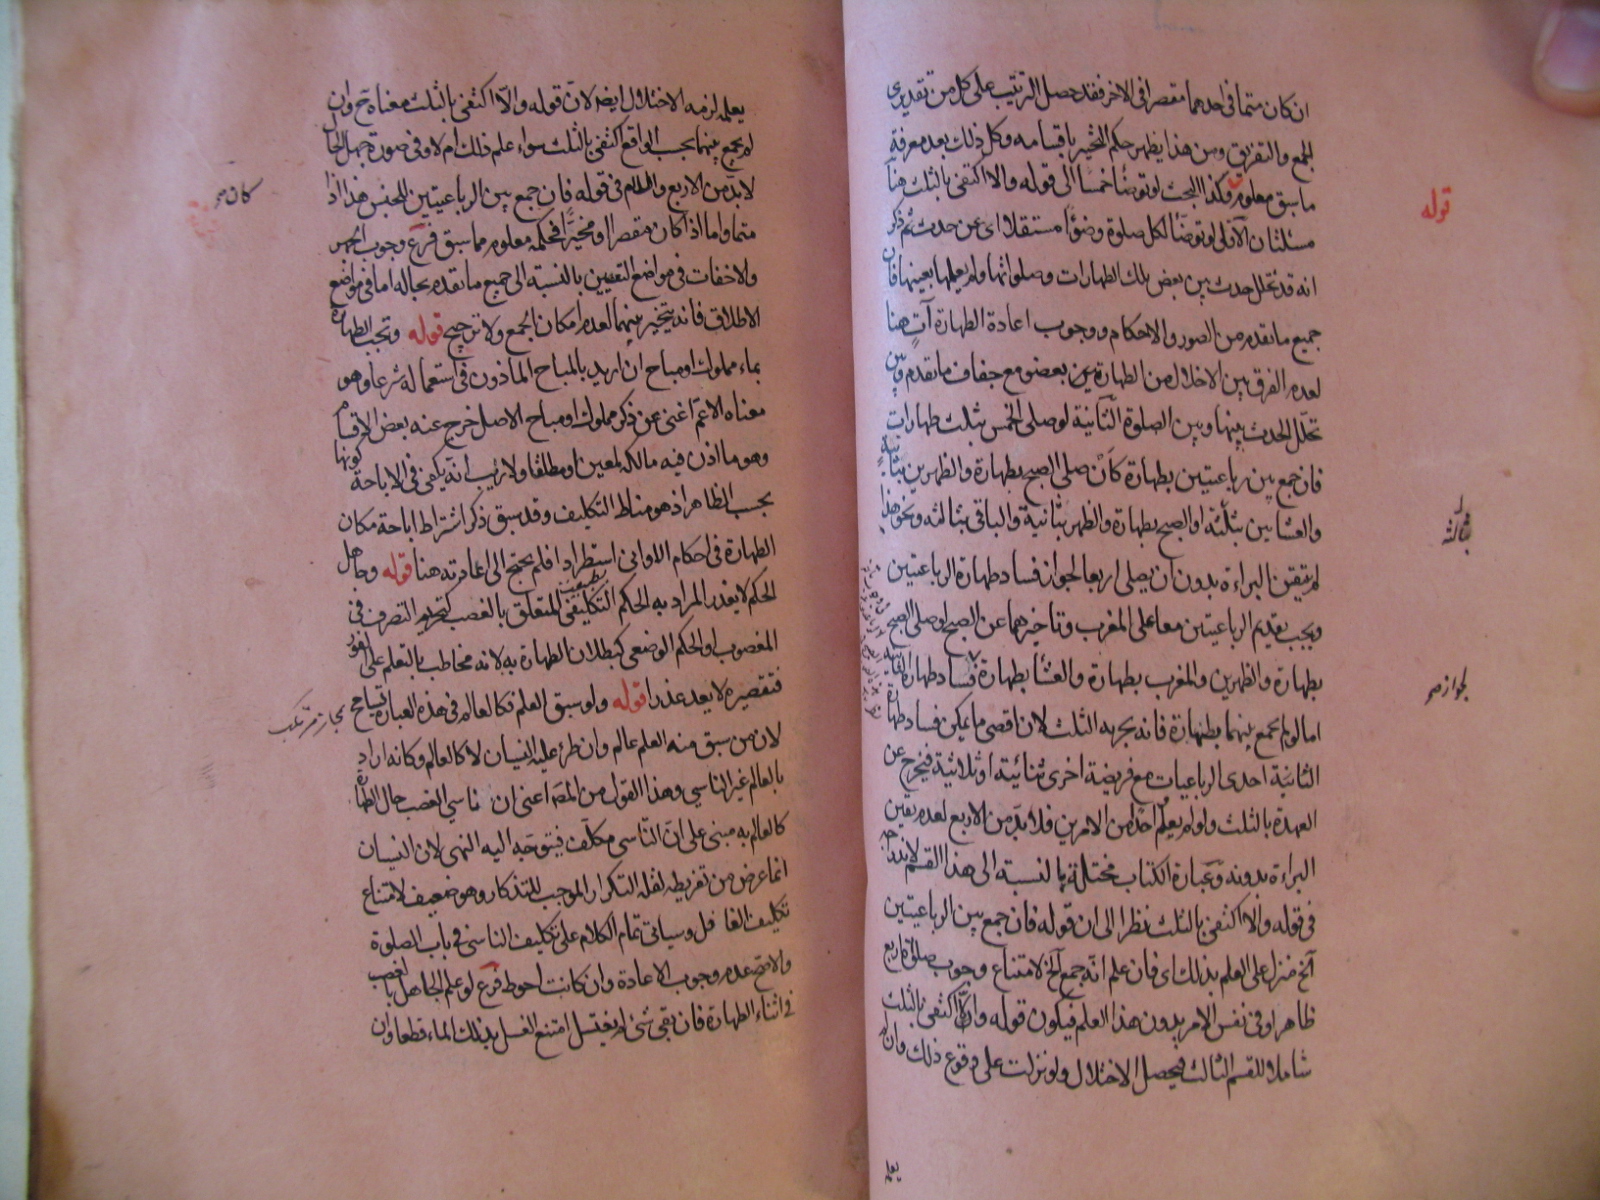 ان كان متما فى احدهما مقصرا فى الاخر فقد حصل الترتيب على كل من تقديرى
الجمع والتفريق ومن هذا يظهر حكم المخير باقسامه وكل ذلك بعد معرفة
ما سبق معلوم وكذا البحث لو توضأ خمسا الى قوله والا اكتفى بالثلث هنا
قوله
مسئلتان الاولى لو توضأ لكل صلوة وضؤا مستقلا اى عن حدث ثم ذكر
انه قد تخلل حدث بين بعض تلك الطهارات وصلواتها ولم يعلمها بعينها فان
جميع ما تقدم من الصور والاحكام ووجوب اعادة الطهارة آت هنا
لعدم الفرق بين الاخلال من الطهارة بعضو مع جفاف ما تقدم وبين
تخلل الحدث بينها وبين الصلوة الثانية لو صلى الخمس بثلث طهارات
فان جمع بين رباعيتين بطهارة كأن صلى الصبح بطهارة والظهرين بثانية
والعشاءين بثالثة او الصبح بطهارة والظهر بثانية والباقى بثالثه ونحو هذا
لم يتقن البراءة بدون ان يصلى اربعا لجواز فساد طهارة الرباعيتين
ويجب تقديم الرباعيتين معا على المغرب وتاخيرهما عن الصبح او صلى الصبح
بطهارة والظهرين والمغرب بطهارة والعشا بطهارة فساد طهارة الثانية
لجواز صح
اما لو لم يجمع بينهما بطهارة فانه يجزيه الثلث لان اقصى ما يمكن فساد طهارة
الثانية احدى الرباعيات مع فريضة اخرى ثنائية او ثلاثية فيخرج عن
العهدة بالثلث ولو لم يعلم احد من الامرين فلا بد من الاربع لعدم يقين
البراءة بدونه وعبارة الكتاب مختلة بالنسبة الى هذا القسم لاندراجه
فى قوله والا اكتفى بالثلث نظرا الى ان قوله فان جمع بين الرباعيتين
آلخ منزل على العلم بذلك اى فان علم انه جمع آلخ لامتناع وجوب صلوة اربع
ظاهرا وفى نفس الامر بدون هذا العلم فيكون قوله والا اكتفى بالثلث
شاملا للقسم الثالث فيحصل الاختلال ولو نزلت على وقوع ذلك وان لم
يعلم
يعلمه لزمه الاختلال ايضا لان قوله والا اكتفى بالثلث معناه ح وان
لم يجمع بينهما بحسب الواقع اكتفى بالثلث سواء علم ذلك ام لا وفى صورة جهل الحال
لا بد من الاربع واللام فى قوله فان جمع بين الرباعيتين للجنس هذا اذا
كان صح
متما واما اذا كان مقصرا او مخيرا فحكمه معلوم مما سبق فرع وجوب الجهر
والاخفات فى مواضع التعيين بالنسبة الى جميع ما تقدم بحاله اما فى مواضع
الاطلاق فانه يتخير بينهما لعدم امكان الجمع ولا ترجيح قوله وتجب الطهارة
بماء مملوك او مباح ان اريد بالمباح الماذون فى استعماله شرعا وهو
معناه الاعم اغنى عن ذكر مملوك او مباح الاصل خرج عنه بعض الاقسام
وهو ما اذن فيه مالكه لمعين او مطلقا ولا ريب انه يكفى فى الاباحة كونها
بحسب الظاهر اذ هو مناط التكليف وقد سبق ذكر اشتراط اباحة مكان
الطهارة فى احكام الاوانى استطرادا فلم يحتج الى اعادته هنا قوله وجاهل
الحكم لا يعذر المراد به الحكم التكليفى المتعلق بالغصب كتحريم التصرف فى
المغصوب او الحكم الوضعى كبطلان الطهارة به لانه مخاطب بالتعلم على الفور
فتقصيره لا يعد عذرا قوله ولو سبق العلم فكالعالم فى هذه العبارة تسامح
لان من سبق منه العلم عالم وان طرء عليه النسيان لا كالعالم وكانه اراد
بالعالم غير الناسى وهذا القول من المصنف اعنى ان ناسى الغصب حال الطهارة
كالعالم به مبنى على ان الناسى مكلف فيتوجه اليه النهى لان النسيان
انما عرض من تفريطه لقلة التكرار الموجب للتذكار وهو ضعيف لامتناع
تكليف الغافل وسياتى تمام الكلام على تكليف الناسى فى باب الصلوة
والاصح عدم وجوب الاعادة وان كانت احوط فرع لو علم الجاهل بالغصب
فى اثناء الطهارة فان بقى شئ لم يغتسل امتنع الغسل بذلك الماء قطعا وان